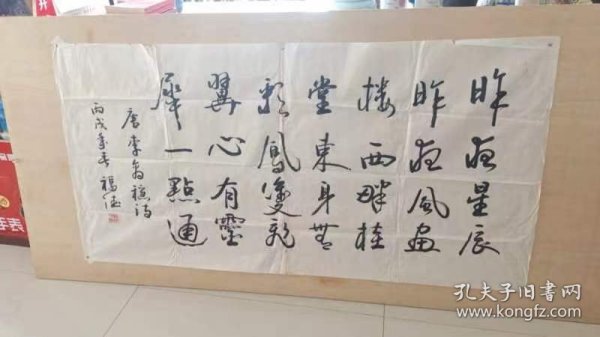 昨夜星辰
昨夜風畫
樓西畔桂
堂東身無
彩鳳雙飛
翼心有靈
犀一點通
唐李商隱詩
丙戌年春 福
手表
孔夫子旧书网
www.kongfz.com